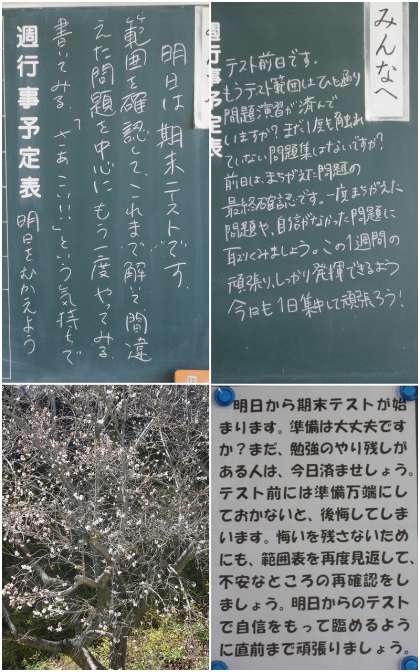 明日は期末テストです。
範囲を確認して、これまで解いて間違
えた問題を中心にもう一度やってみる
書いてみる「さあこい!!」という気持ちで
明日をむかえよう
週行事予定表
みんなへ
週行事予定表
テスト前日です。
もうテスト範囲はひと通り
問題演習が済んで
いますか?まだ1度も触れ
ていない問題集はないですか?
前日は、まちがえた問題の
最終確認です。一度まちがえた
問題や、自信がなかった問題に
取りくみましょう。この1週間の
頑張り、しっかり発揮できるよう
今日も1日集中して頑張ろう!
明日から期末テストが始
まります。準備は大丈夫です
か?まだ、勉強のやり残しが
ある人は、今日済ませましょう。
テスト前には準備万端にし
ておかないと、後悔してしま
います。悔いを残さないため
にも、範囲表を再度見返して、
不安なところの再確認をし
ましょう。明日からのテスト
で自信をもって臨めるよう
に直前まで頑張りましょう。